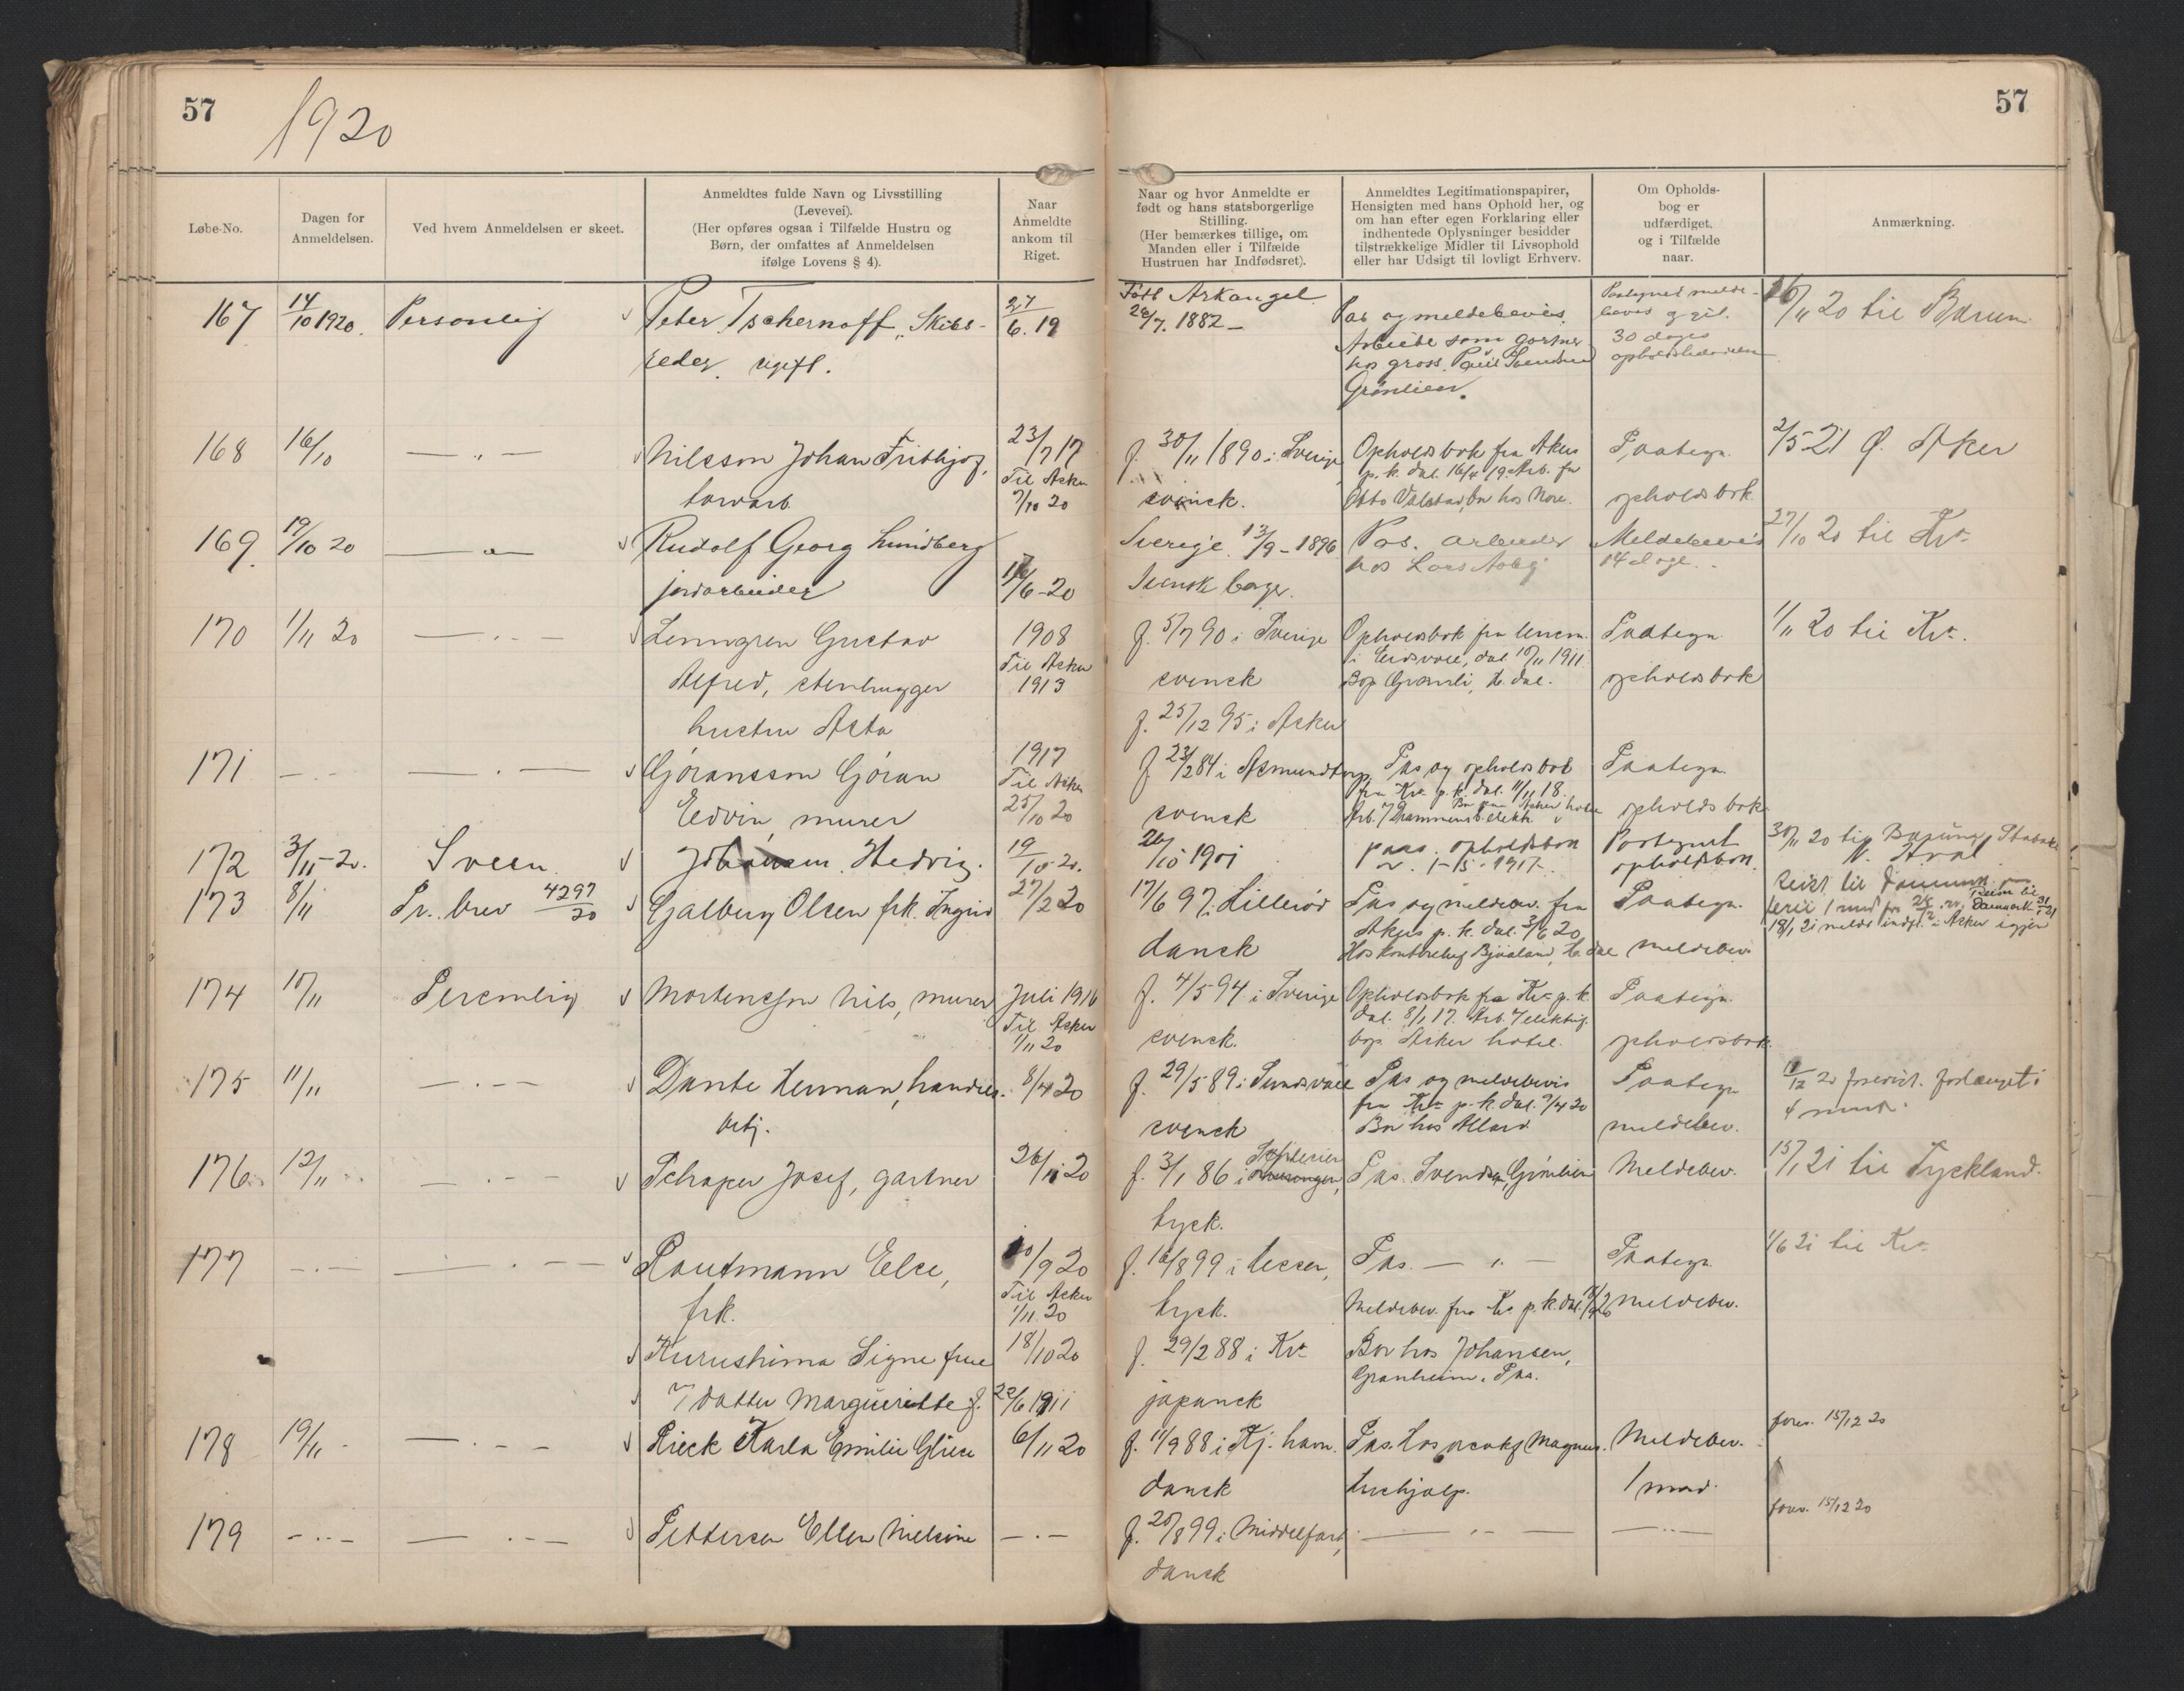 57
1920
57
Løbe-No.
Dagen for
Anmeldelsen.
Ved hvem Anmeldelsen er skeet.
Anmeldtes fulde Navn og Livsstilling
(Levevei).
(Her opføres ogsaa i Tilfælde Hustru og
Børn, der omfattes af Anmeldelsen
ifølge Lovens § 4).
Naar
Anmeldte
ankom til
Riget.
Naar og hvor Anmeldte er
født og hans statsborgerlige
Stilling.
(Her bemærkes tillige, om
Manden eller i Tilfælde
Hustruen har Indfødsret).
Anmeldtes Legitimationspapirer,
Hensigten med hans Ophold her, og
om han efter egen Forklaring eller
indhentede Oplysninger besidder
tilstrækkelige Midler til Livsophold
eller har Udsigt til lovligt Erhverv.
Om Opholds-
bog er
udfærdiget,
og i Tilfælde
naar.
Anmærkning.
167
14/10 1920.
Personlig
Peter Tschernoff, Skibs-
reder ugift.
27/6. 19
Født Arkangel
26/7. 1882 -
Pas og meldebevis.
Arbeide som gartner
hos gross. Paul Svendsen
Grønlien.
30 dages
16/11 20 til Bærum
168
16/10
— " —
Nilsson Johan Frithjof,
torvarb.
23/7 17
Til Asker
7/10 20
f. 30/11 1890 i Sverige
svensk.
Opholdsbok fra Akers
p. k. dat. 16/4 19. Arb. for
Otto Valstad, bor hos Nore.
Paategn.
opholdsbok
2/5-21 Ø. Aker
169
19/10 20
— " —
Rudolf Georg Lundberg
jordarbeider
17/6-20
Sverige 13/9-1896
Svensk borger.
Pas. arbeider
hos Lars Aaby
Meldebevis
14 dage.
27/10 20 til Kr.a
170
1/11 20
— " —
Lenngren Gustav
Alfred, stenhugger
hustru Asta
1908
Til Asker
1913
f. 5/7 90 i Sverige
svensk
f. 25/12 95 i Asker
Opholdsbok fra lensm.
i Eidsvold, dat. 10/11 1911.
Bop. Granli, H. dal.
Paategn.
opholdsbok
1/11 20 til Kr.a
171
— " —
— " —
Göransson Göran
Edvin, murer
1917
Til Asker
25/10 20
f. 23/2 84 i Asmundtorp
svensk
Pas og opholdsbok
fra Kr.a p. k. dat. 11/11 18.
Bor paa Asker hotel
Paategn.
opholdsbok.
172
3/11-20.
Sveen
Johansen Hedvig.
19/10 20.
26/10 1901
pass. opholdsbok
Paategnet
opholdsbok.
30/11 20 til Bærum, Stabæk
173
8/11
Pr. brev 4297/20
Galberg Olsen frk. Ingrid
27/2 20
17/6 97 i Hillerød
dansk
Pas og meldebev. fra
Akers p. k. dat. 3/6 20
Hos kontorchef Bjaaland, H. dal
Paategn.
meldebev.
18/1 21 meldt indfl. i Asker igjen
174
10/11
Personlig
Mortensson Nils, murer
Juli 1916
Til Asker
1/11 20
f. 4/5 94 i Sverige
svensk.
Opholdsbok fra Kr.a p. k.
dat. 8/1 17.
bop. Asker hotel.
Paategn.
opholdsbok.
175
11/11
— " —
Dante Herman, handels-
betj.
8/4 20
f. 29/5 89 i Sundsvall
svensk
Pas og meldebevis
fra Kr.a p. k. dat. 9/4 20
Bor hos Allard
Paategn.
meldebev.
176
12/11
— " —
Schaper Josef, gartner
26/10 20
f. 3/1 86 i
tysk.
Pas. Svendsen, Grønlien
Meldebev.
15/1 21 til Tyskland.
177
— " —
— " —
Rautmann Else,
frk.
10/9 20
Til Asker
1/11 20
f. 16/8 99 i Essen,
tysk.
Pas. — " —
Meldebev. fra Kr.a p. k. dat.
Paategn.
meldebev.
1/6 21 til Kr.a
Kurushima Signe frue
18/10 20
f. 29/2 88 i Kr.a
japansk
Bor hos Johansen,
Granheim. Pas.
datter Margueritte f. 22/6 1911
178
19/11
— " —
Rieck Karla Emilie
6/11 20
f. 11/9 88 i Kj. havn.
dansk
Pas. Hos Magnus.
hushjælp.
Meldebev.
1 mnd.
forev. 15/12 20
179
— " —
— " —
Pettersen Ellen Nielsine
— " —
f. 20/8 99 i Middelfart,
dansk
— " —
— " —
forev. 15/12 20